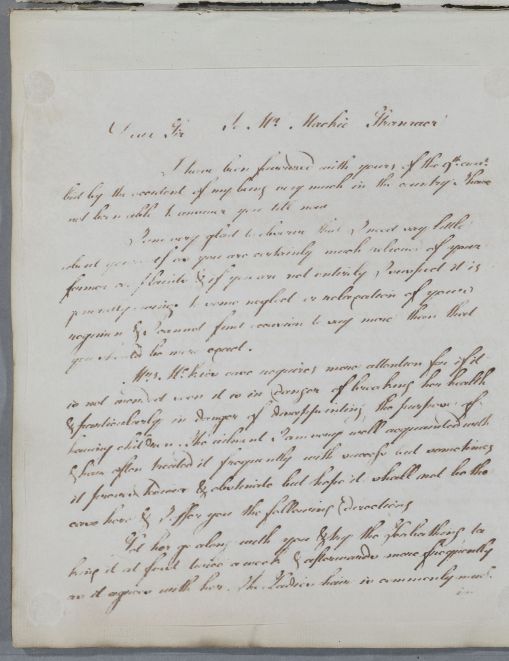 Dear Sir To Mr. Mackie Stranraer
I have been favored with yours of the 9th curt.
but by the accident of my being very much in the country I have
not been able to answer you till now
I am very glad to observe that I need say little
about yourself as you are certainly much relieved of your
former complaints & if you are not entirely I suspect it is
partly owing to some neglect or relaxation of your
regimen & I cannot find occasion to say more than that
you should be more exact.
Mrs. McKies case requires more attention for if it
is not mended soon it is in danger of breaking her health
& particularly in danger of disappointing the purpose of
having children. The ailment I am very well acquainted with
& have often treated it frequently with success but sometimes
it proves tedious & obstinate but hope it shall not be the
case here & I offer you the following directions
Let her go along with you & try the Seabathing ta
king it at first twice a week & afterwards more frequently
as it agrees with her. The Ladies hair is commonly much
in